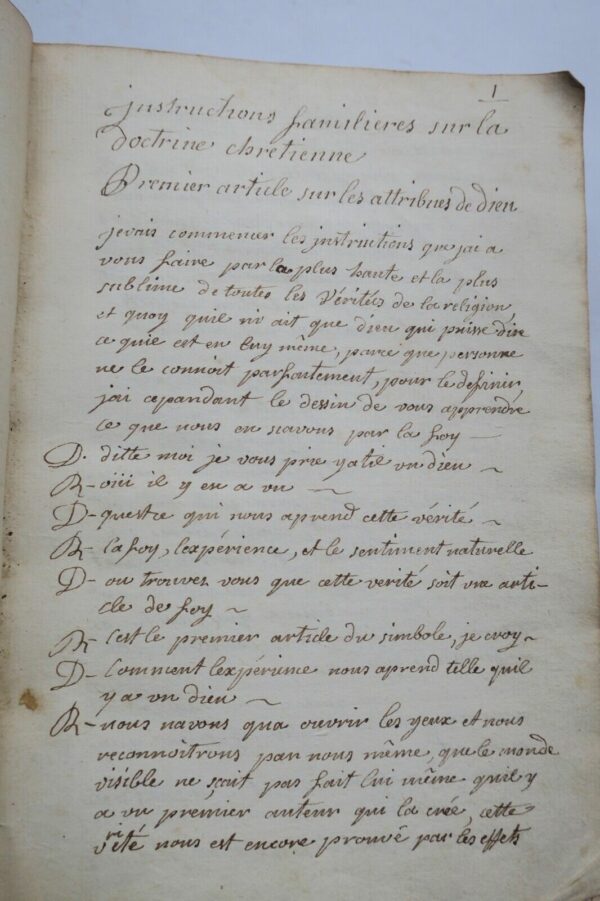 1
jnstructions familieres sur la
doctrine chretienne
Premier article sur les attribues de dieu
je vais commencer les jnstructions que jai a
vous faire par la plus haute et la plus
sublime de toutes les Vérités de la religion
et quoy quil ni ait que dieu qui puisse dire
ce quil est en luy même, parce que personne
ne le connoit parfaitement, pour le definir,
jai cepandant le dessin de vous apprendre
ce que nous en scavons par la foy
D. ditte moi je vous prie yatil vn dieu ~
R- oüi il y en a vn ~
D- questce qui nous aprend cette vérité ~
R- la foy, lexpérience, et le sentiment naturelle
D- ou trouvez vous que cette verité soit vn arti-
cle de foy ~
R- cest le premier article du simbole, je croy ~
D- Comment lexpérience nous aprend telle quil
y a vn dieu ~
R- nous navons qua ouvrir les yeux et nous
reconnoitrons par nous même, que le monde
visible ne sçait pas fait lui même quil y
a vn premier auteur qui la crée, cette
vérité nous est encore prouvé par les effets